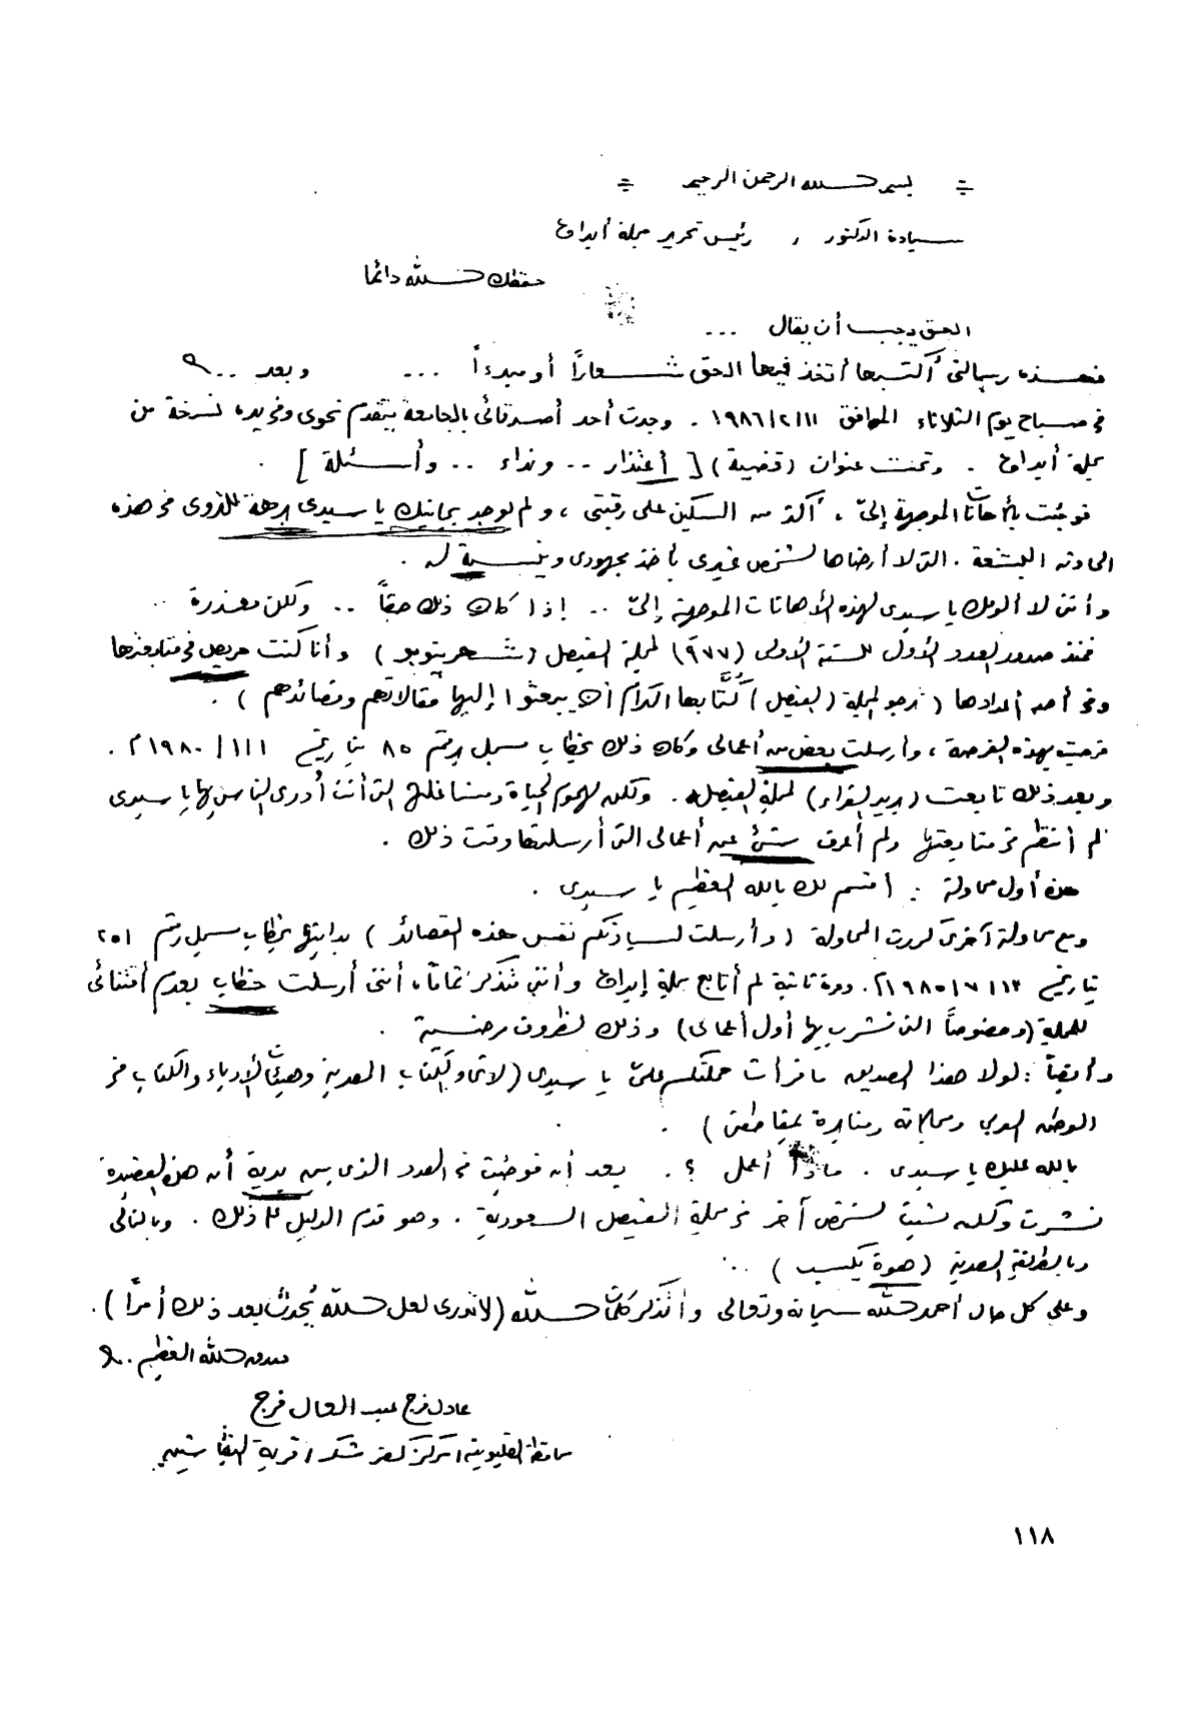 = بسم الله الرحمن الرحيم =
سيادة الدكتور ، رئيس تحرير مجلة أبداع
حفظك الله دائما
الحق يجب أن يقال ...
فهذه رسالتى أكتبها أتخذ فيها الحق شعاراً أو مبدءاً ... وبعد ..
فى صباح يوم الثلاثاء الموافق ١٩٨٦/٢/١١ . وجدت أحد أصدقائى بالجامعة يتقدم نحوى وفى يده نسخة من
مجلة أبداع . وتحت عنوان (قضية) [ أعتذار .. ونداء .. وأسئلة ] .
فوجئت بالأهانات الموجهة إلىّ ، أكثر من السكين على رقبتى ، ولم لوجد بجانبك يا سيدى برهة للتروى فى هذه
الحادثه البشعة . التى لا أرضاها لشخص غيرى يأخذ مجهودى وينسبة له .
وأننى لا ألومك يا سيدى لهذه الأهانات الموجهة إلىّ .. إذا كان ذلك حقاً .. ولكن معذرة ..
فمنذ صدور العدد الأول للسنة الأولى (٩٧٧) لمجلة الفيصل (شهر يونيو) وأنا كنت حريص فى متابعتها
وفى أحد أعدادها ( ترجو المجلة (الفيصل) كُتَّابها الكرام أن يبعثوا إليها مقالاتهم وقصائدهم ) .
فرحت بهذه الفرصة ، وأرسلت بعض من أعمالى وكان ذلك بخطاب مسجل برقم ٨٥ بتاريخ ١/١١/١٩٨٠م .
وبعد ذلك تابعت (بريد القراء) لمجلة الفيصل . ولكن لهموم الحياة ومشاغلها التى أنت أدرى الناس بها يا سيدى
لم أنتظم فى متابعتها ولم أعرف شئ عن أعمالى التى أرسلتها وقت ذلك .
هذه أول محاولة : أقسم لك بالله العظيم يا سيدى .
ومع محاولة آخرى كررت المحاولة (وأرسلت لسيادتكم نفس هذه القصائد) بدايتها بخطاب مسجل رقم ٢٥١
بتاريخ ١٣/٧/١٩٨٥م . ومرة ثانية لم أتابع مجلة إبداع وأننى متذكر تماماً ، أننى أرسلت خطاب بعدم أقتنائى
للمجلة (وخصوصاً التى نشر بها أول أعمالى) وذلك لظروف مرضية .
وأيضاً : لولا هذا الصديق ما قرأت حملتكم علىّ يا سيدى (لاتحاد الكتاب المصرية وهيئات الأدباء والكتاب فى
الوطن العربى ومجلاته ومنابره بمقاطعتى ) .
بالله عليك يا سيدى . ماذا أعمل ؟ . بعد أن فوجئت فى العدد الذى بين يدية أن هذه القصيدة
نشرت ولكن نسبت لشخص آخر فى مجلة الفيصل السعودية . وهو قدم الدليل على ذلك . وبالتالى
وبالطلقة المصرية (هوة يكسب) ...
وعلى كل حال أحمد الله سبحانه وتعالى وأتذكر كلمات الله (لا تدرى لعل الله يُحدث بعد ذلك أمرًا ) .
صدق الله العظيم ..
عادل فرج عبد العال فرج
محافظة القليوبية / مركز كفر شكر / قرية البقاشين
١١٨